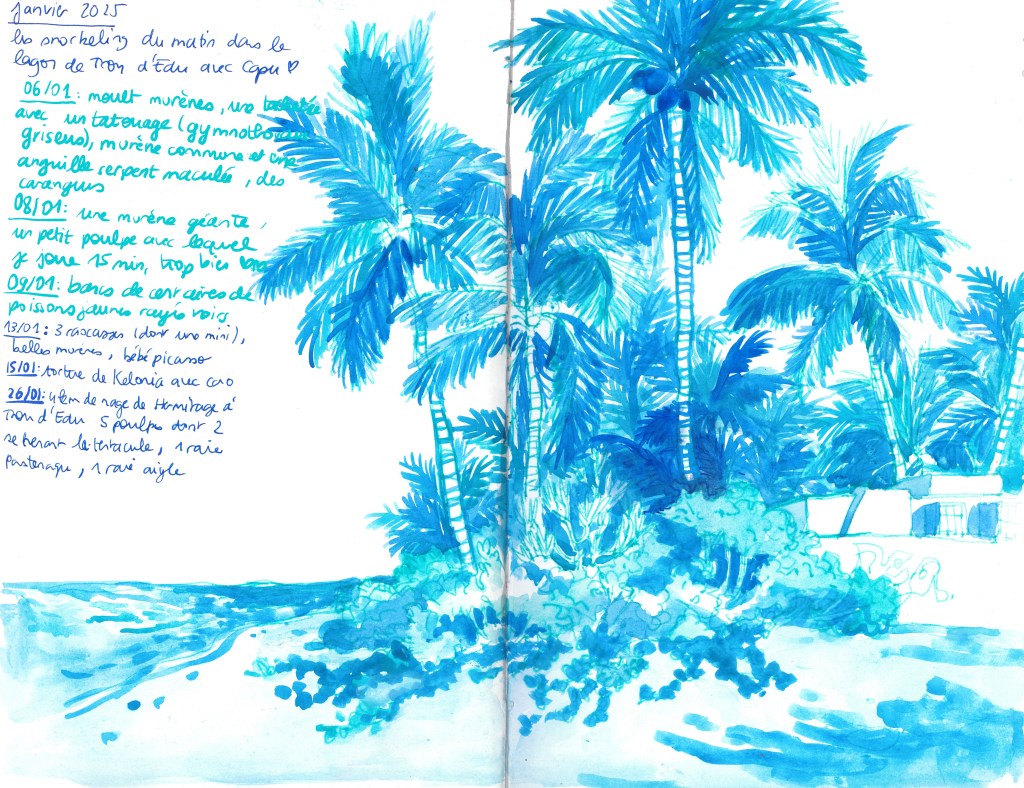 janvier 2025
les snorkeling du matin dans le
lagon de Trou d'Eau avec Capu ♡
06/01 : moult murènes, une
avec un tatouage (gymnothorax
griseus), murène commune et une
anguille serpent maculée, des
carangues
08/01 : une murène géante,
un petit poulpe avec lequel
je joue 15 min, trop bien
09/01 : bancs de centaines de
poissons jaunes rayés noirs
13/01 : 3 rascasses (dont une mini),
belles murènes, bébé picasso
15/01 : tortue de Kelonia avec caro
26/01 : 4 km de nage de Hermitage à
Trou d'Eau 5 poulpes dont 2
se tenant le tentacule, 1 raie
Pastenague, 1 raie aigle